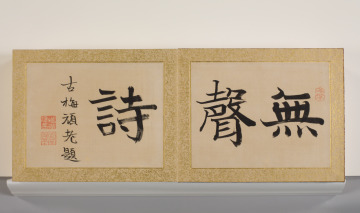 無聲
詩
古梅頑老題